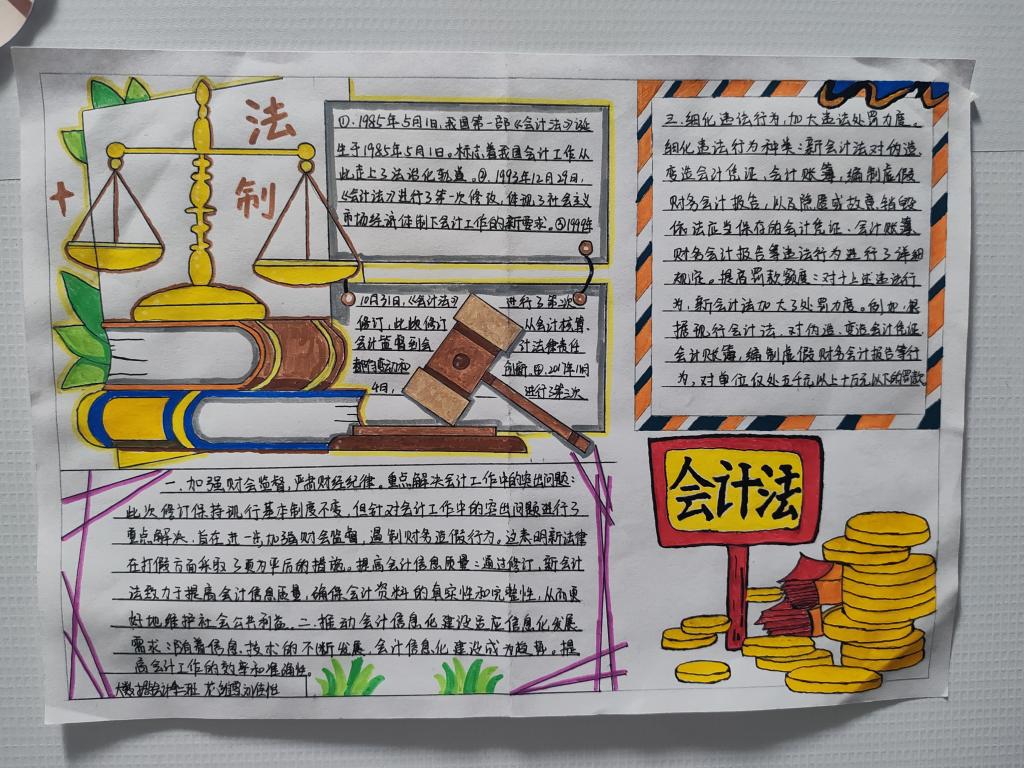 法
制
①.1985年5月1日,我国第一部《会计法》诞
生于1985年5月1日。标志着我国会计工作从
此走上了法治化轨道。②.1993年12月29日,
《会计法》进行了第一次修改,体现了社会主义
市场经济体制下会计工作的新要求。③1999年
10月31日,《会计法》 进行了第二次
修订,此次修订 从会计核算、
会计监督到会 计法律责任
创新,④.2017年11月
4日, 进行了第三次
三.细化违法行为,加大违法处罚力度。
细化违法行为种类:新会计法对伪造、
变造会计凭证、会计账簿,编制虚假
财务会计报告,以及隐匿或故意销毁
依法应当保存的会计凭证、会计账簿、
财务会计报告等违法行为进行了详细
规定。提高罚款额度:对于上述违法行
为,新会计法加大了处罚力度。例如,根
据现行会计法,对伪造、变造会计凭证
会计账簿,编制虚假财务会计报告等行
为,对单位仅处五千元以上十万元以下的罚款
会计法
一.加强财会监督,严肃财经纪律。重点解决会计工作中的突出问题:
此次修订保持现行基本制度不变,但针对会计工作中的突出问题进行了
重点解决,旨在进一步加强财会监督,遏制财务造假行为。这表明新法律
在打假方面采取了更为严厉的措施。提高会计信息质量:通过修订,新会计
法致力于提高会计信息质量,确保会计资料的真实性和完整性,从而更
好地维护社会公共利益。二.推动会计信息化建设适应信息化发展
需求:随着信息技术的不断发展,会计信息化建设成为趋势。提
高会计工作的效率和准确性。